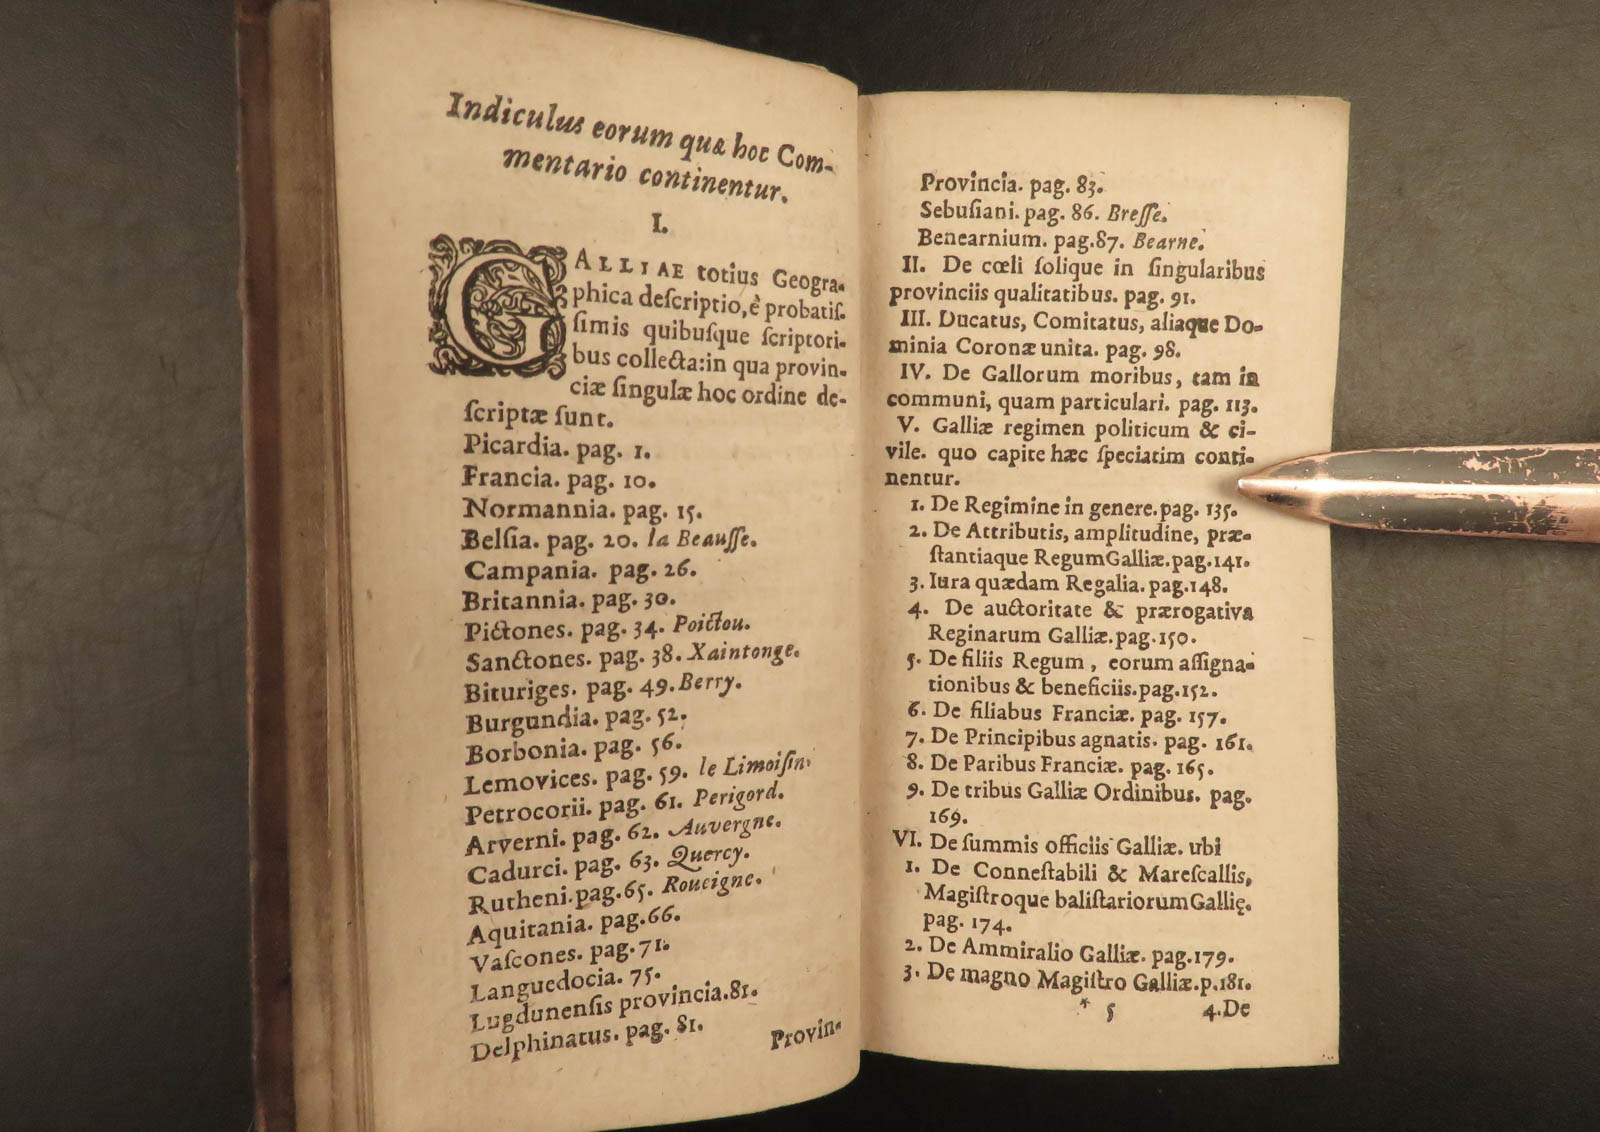 Indiculus eorum quæ hoc Com-
mentario continentur.
I.
GALLIAE totius Geogra-
phica deſcriptio, è probatiſ-
ſimis quibuſque ſcriptori-
bus collecta: in qua provin-
ciæ ſingulæ hoc ordine de-
ſcriptæ ſunt.
Picardia. pag. 1.
Francia. pag. 10.
Normannia. pag. 15.
Belſia. pag. 20. la Beauſſe.
Campania. pag. 26.
Britannia. pag. 30.
Pictones. pag. 34. Poictou.
Sanctones. pag. 38. Xaintonge.
Bituriges. pag. 49. Berry.
Burgundia. pag. 52.
Borbonia. pag. 56.
Lemovices. pag. 59. le Limoiſin.
Petrocorii. pag. 61. Perigord.
Arverni. pag. 62. Auvergne.
Cadurci. pag. 63. Quercy.
Rutheni. pag. 65. Roueigne.
Aquitania. pag. 66.
Vaſcones. pag. 71.
Languedocia. 75.
Lugdunenſis provincia. 81.
Delphinatus. pag. 81.
Provin-
Provincia. pag. 83.
Sebuſiani. pag. 86. Breſſe.
Benearnium. pag. 87. Bearne.
II. De cœli ſolique in ſingularibus
provinciis qualitatibus. pag. 91.
III. Ducatus, Comitatus, aliaque Do-
minia Coronæ unita. pag. 98.
IV. De Gallorum moribus, tam in
communi, quam particulari. pag. 113.
V. Galliæ regimen politicum & ci-
vile. quo capite hæc ſpeciatim conti-
nentur.
1. De Regimine in genere. pag. 135.
2. De Attributis, amplitudine, præ-
ſtantiaque Regum Galliæ. pag. 141.
3. Iura quædam Regalia. pag. 148.
4. De auctoritate & prærogativa
Reginarum Galliæ. pag. 150.
5. De filiis Regum, eorum aſſigna-
tionibus & beneficiis. pag. 152.
6. De filiabus Franciæ. pag. 157.
7. De Principibus agnatis. pag. 161.
8. De Paribus Franciæ. pag. 165.
9. De tribus Galliæ Ordinibus. pag.
169.
VI. De ſummis officiis Galliæ. ubi
1. De Conneſtabili & Mareſcallis,
Magiſtroque baliſtariorum Gallię.
pag. 174.
2. De Ammiralio Galliæ. pag. 179.
3. De magno Magiſtro Galliæ. p. 181.
* 5 4. De